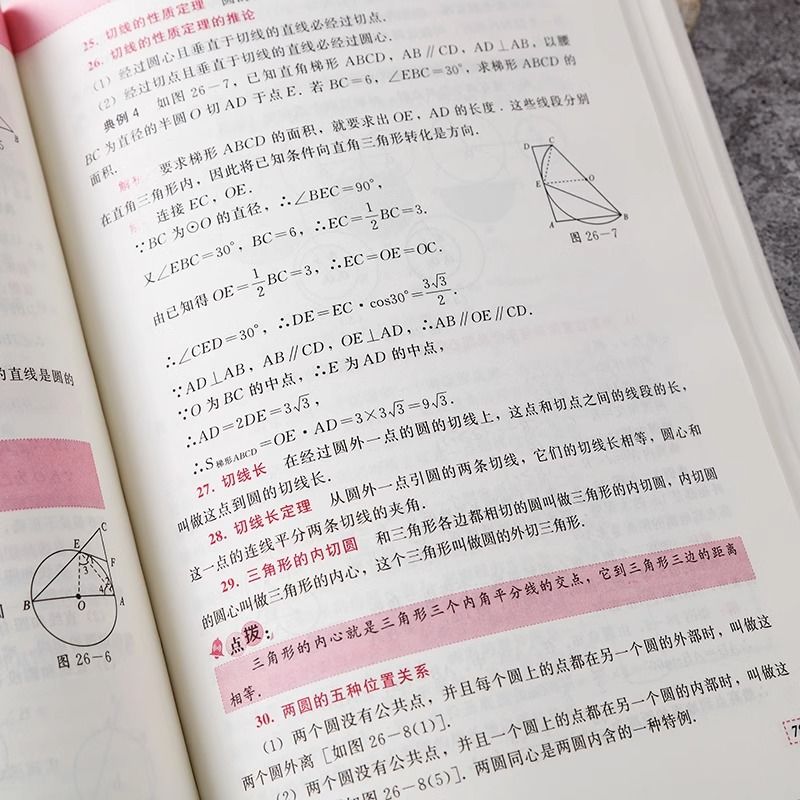 25. 切线的性质定理
26. 切线的性质定理的推论
(1) 经过圆心且垂直于切线的直线必经过切点.
(2) 经过切点且垂直于切线的直线必经过圆心.
典例 4 如图 26-7, 已知直角梯形 ABCD, AB∥CD, AD⊥AB, 以腰
BC 为直径的半圆 O 切 AD 于点 E. 若 BC=6, ∠EBC=30°, 求梯形 ABCD 的
面积.
要求梯形 ABCD 的面积, 就要求出 OE, AD 的长度. 这些线段分别
在直角三角形内, 因此将已知条件向直角三角形转化是方向.
连接 EC, OE.
∵BC 为⊙O 的直径, ∴∠BEC=90°,
又∠EBC=30°, BC=6, ∴EC=1/2BC=3.
由已知得 OE=1/2BC=3, ∴EC=OE=OC.
∴∠CED=30°, ∴DE=EC·cos30°=3√3/2.
∵AD⊥AB, AB∥CD, OE⊥AD, ∴AB∥OE∥CD.
∵O 为 BC 的中点, ∴E 为 AD 的中点,
∴AD=2DE=3√3,
∴S梯形ABCD=OE·AD=3×3√3=9√3.
27. 切线长 在经过圆外一点的圆的切线上, 这点和切点之间的线段的长,
叫做这点到圆的切线长.
28. 切线长定理 从圆外一点引圆的两条切线, 它们的切线长相等, 圆心和
这一点的连线平分两条切线的夹角.
29. 三角形的内切圆 和三角形各边都相切的圆叫做三角形的内切圆, 内切圆
的圆心叫做三角形的内心, 这个三角形叫做圆的外切三角形.
点拨:
三角形的内心就是三角形三个内角平分线的交点, 它到三角形三边的距离
相等.
30. 两圆的五种位置关系
(1) 两个圆没有公共点, 并且每个圆上的点都在另一个圆的外部时, 叫做这
两个圆外离 [如图 26-8(1)].
(2) 两个圆没有公共点, 并且一个圆上的点都在另一个圆的内部时, 叫做这
如图 26-8(5)]. 两圆同心是两圆内含的一种特例.
D
C
E
O
A
B
图 26-7
的直线是圆的
C
E
F
B
O
A
图 26-6